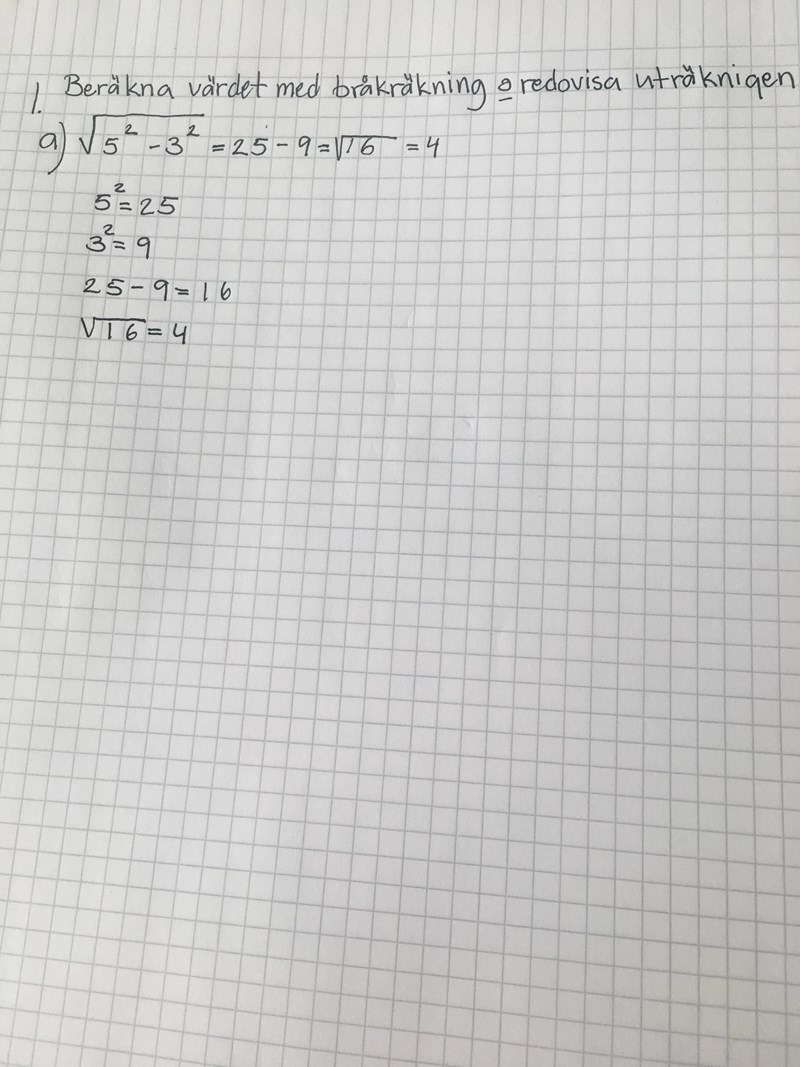 1. Beräkna värdet med bråkräkning o redovisa uträknigen
a) √(5² - 3²) = 25 - 9 = √16 = 4
5² = 25
3² = 9
25 - 9 = 16
√16 = 4